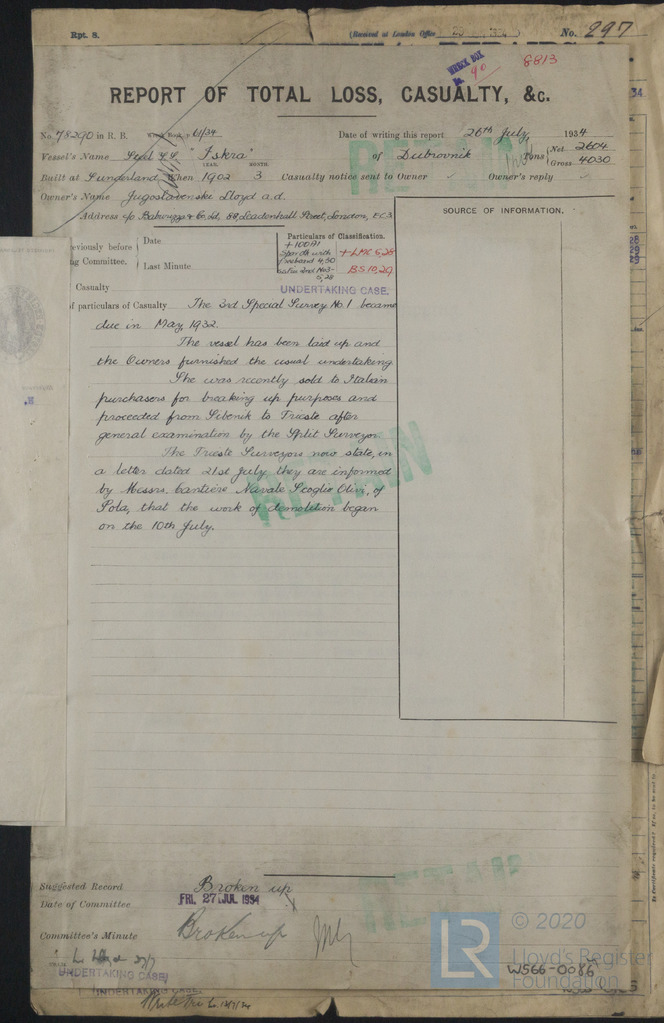 Rpt. 8.
(Received at London Office
No. 297
WRECK BOX
No. 90
8813
REPORT OF TOTAL LOSS, CASUALTY, &c.
No. 78290 in R. B. 61/34
Date of writing this report 26th July, 1934
Vessel's Name Steel S.S. "Iskra" of Dubrovnik Tons Net 2604 Gross 4030
YEAR. MONTH.
Built at Sunderland When 1902 3 Casualty notice sent to Owner ✓ Owner's reply ✓
Owner's Name Jugoslavenski Lloyd a.d.
Address c/o & Co. Ld, 88, Leadenhall Street, London, EC3
SOURCE OF INFORMATION.
eviously before
ng Committee.
Date
Last Minute
Particulars of Classification.
+100A1
with
freeboard 4,30
2nd No3-
5,28
+LMC 5,28
BS 10,29
Casualty
UNDERTAKING CASE.
f particulars of Casualty The 2nd Special Survey No. 1 became
due in May, 1932.
The vessel has been laid up and
the Owners furnished the usual undertaking.
She was recently sold to Italian
purchasers for breaking up purposes and
proceeded from Sibenik to Trieste after
general examination by the Split Surveyor.
The Trieste Surveyors now state, in
a letter dated 21st July they are informed
by Messrs. Cantiere Navale Scoglio Olivi, of
Pola, that the work of demolition began
on the 10th July.
RETAIN
Suggested Record Broken up
Date of Committee FRI. 27 JUL 1934
Committee's Minute Broken up
27/7
UNDERTAKING CASE!
UNDERTAKING CASE!
LR
© 2020
Lloyd's Register
Foundation
W566-0086